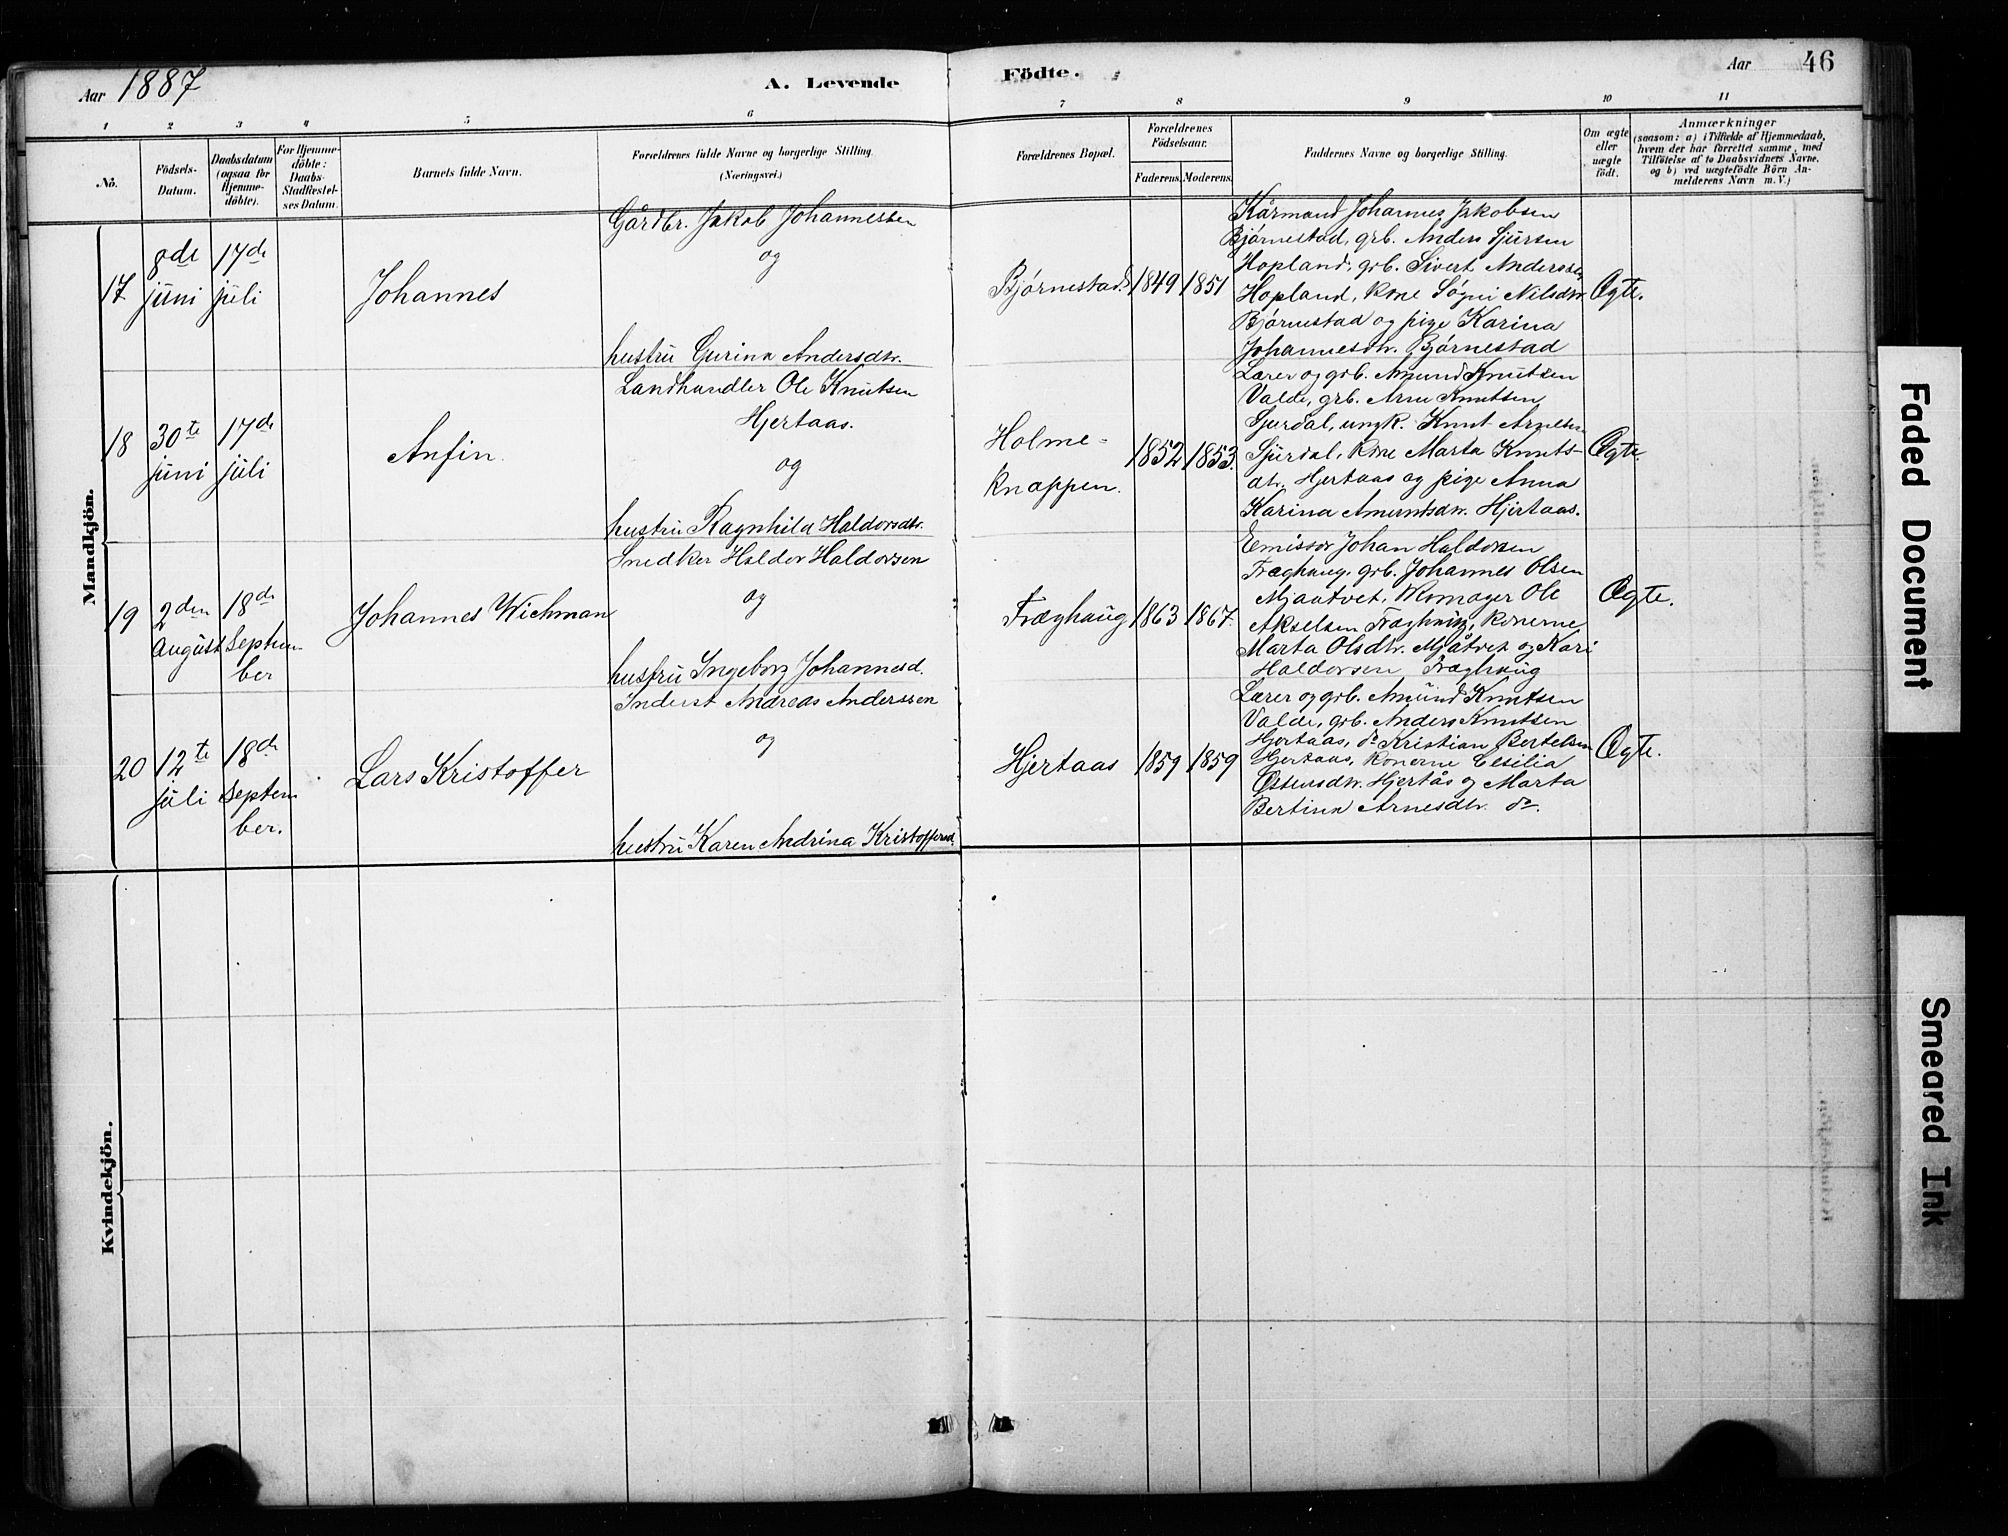 Aar 1887
A. Levende
Födte.
Aar
46
1 2 3 4 5 6 7 8 9 10 11
No.
Födsels-
Datum.
Daabsdatum
(ogsaa for
Hjemme-
döbte).
For Hjemme-
döbte:
Daabs-
Stadfæstel-
ses Datum.
Barnets fulde Navn.
Forældrenes fulde Navne og borgerlige Stilling.
(Næringsvei.)
Forældrenes Bopæl.
Forældrenes
Födselsaar.
Faderens. Moderens.
Faddernes Navne og borgerlige Stilling.
Om ægte
eller
uægte
födt.
Anmærkninger
(saasom: a) i Tilfælde af Hjemmedaab,
hvem der har forrettet samme, med
Tilföielse af to Daabsvidners Navne,
og b) ved uægtefödte Börn An-
melderens Navn m. V.)
Mandkjön.
17
8de
juni
17de
juli
Johannes
Gårdbr. Jakob Johannessen
og
hustru Gurina Andersdtr.
Bjørnestad
1849 1851
Kårmand Johannes Jakobsen
Bjørnestad, grb. Anders Sjursen
Hopland, grb. Sivert Anderssen
Hopland, kone Søgni Nilsdtr.
Bjørnestad og pige Karina
Johannesdtr. Bjørnestad
Ægte.
18
30te
juni
17de
juli
Anfin
Landhandler Ole Knutsen
Hjertaas.
og
hustru Ragnhild Haldorsdtr.
Holme-
knappen.
1852 1853.
Lærer og grb. Amund Knutsen
Valde, grb. Arne Knutsen
Sjurdal, ungk. Knut Arnesen
Sjurdal, kone Marta Knuts-
dtr. Hjertaas og pige Anna
Karina Amundsdtr. Hjertaas.
Ægte.
19
2den
August
18de
Septem-
ber
Johannes Wichman
Snedker Haldor Haldorsen
og
hustru Ingeborg Johannesd.
Fræghaug
1863 1867
Emissær Johan Haldorsen
Fræghaug, grb. Johannes Olsen
Mjaatvet, Skomager Ole
Akselsen Fræghaug, konerne
Marta Olsdtr. Mjåtvet og Kari
Haldorsen Fræghaug
Ægte.
20
12te
juli
18de
Septem
ber.
Lars Kristoffer
Inderst Andreas Anderssen
og
hustru Karen Andrina Kristoffersd.
Hjertaas
1859 1859
Lærer og grb. Amund Knutsen
Valde, grb. Anders Knutsen
Hjertaas, do Kristian Bertelsen
Hjertaas, konerne Cesilia
Østensdtr. Hjertås og Marta
Bertina Arnesdtr. do.
Ægte.
Kvindekjön.
Faded Document
Smeared Ink